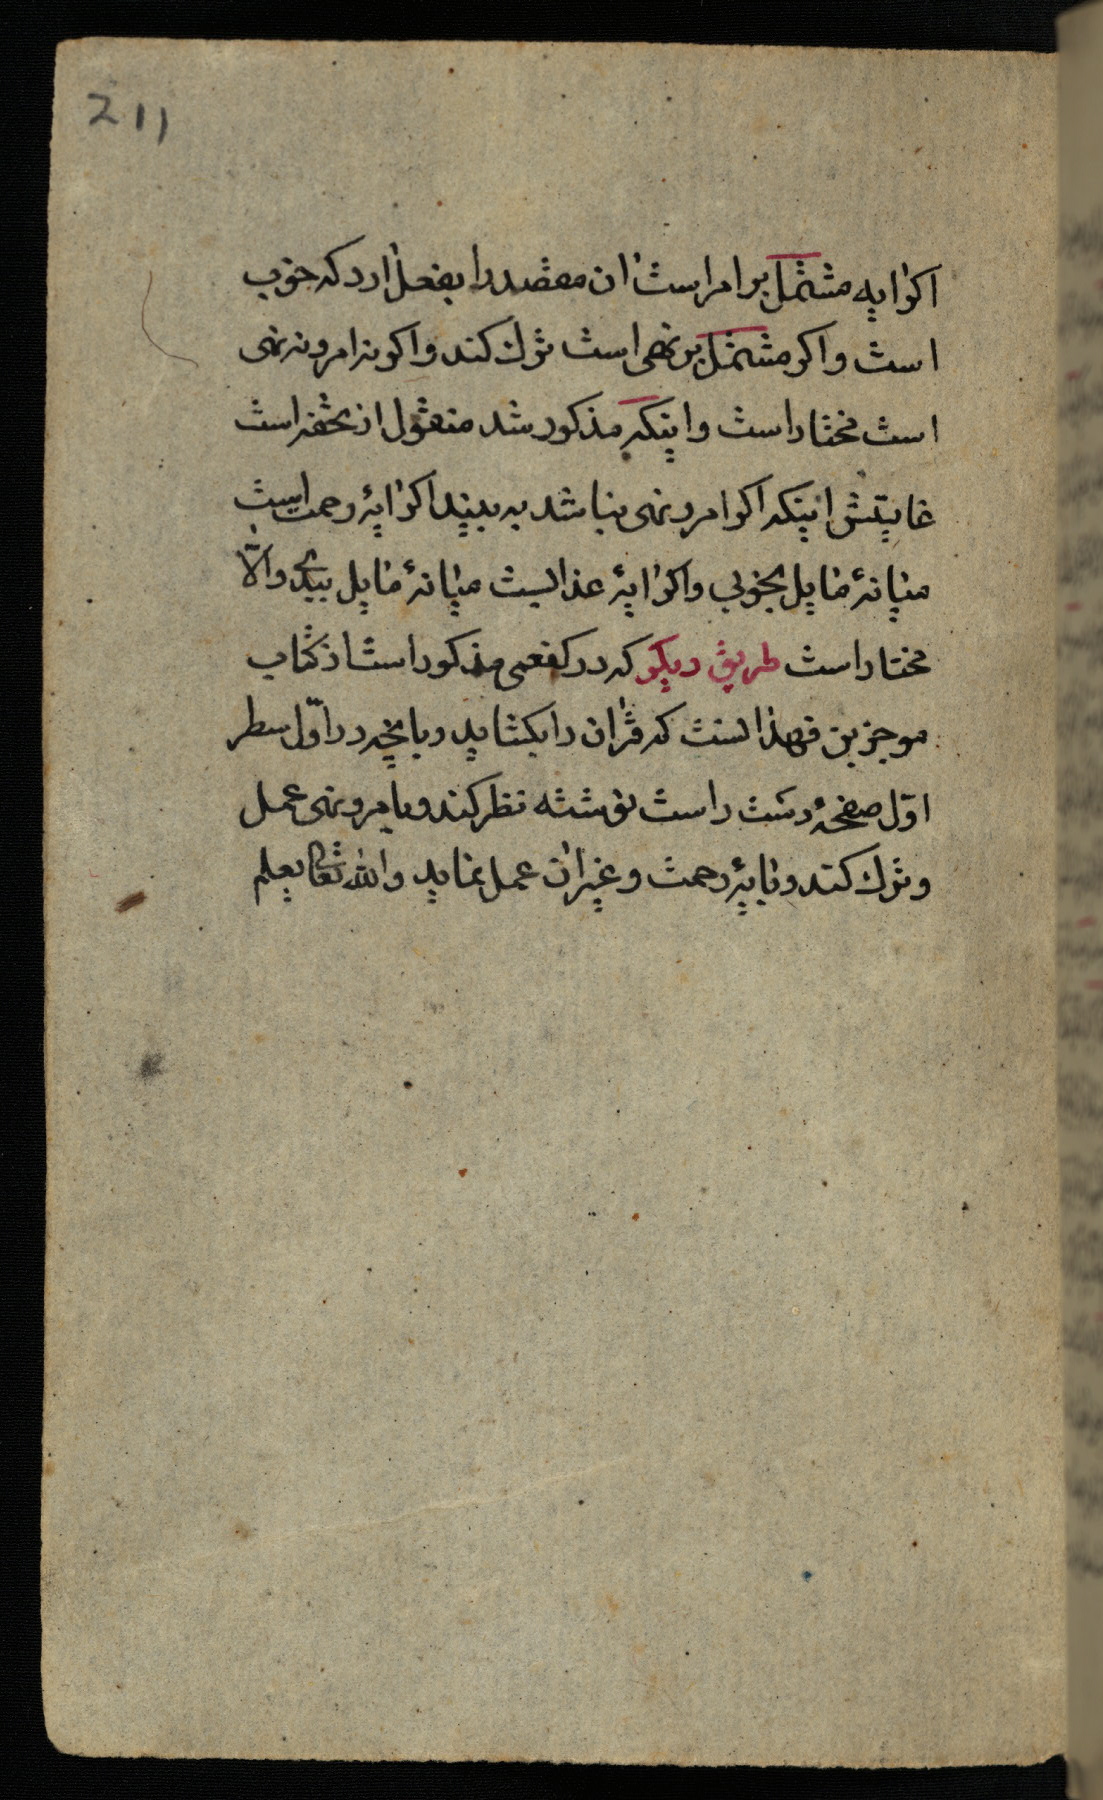 211
اکر ایه مشتمل بر امر است ان مقصد را بفعل ارد که خوب
است و اکر مشتمل بر نهی است ترک کند و اکر نه امر و نه نهی
است مختار است و اینکه مذکور شد منقول از تحفه است
غایتش اینکه اکر امر و نهی نباشد به بیند اکر ایۀ رحمت است
میانۀ مایل بخوبی و اکر ایۀ عذابست میانۀ مایل ببدی و الّا
مختار است طریق دیکر که در کفعمی مذکور است از کتاب
موجز بن فهد انست که قران را بکشاید و بانچه در اوّل سطر
اوّل صفحۀ دست راست نوشته نظر کند و بامر و نهی عمل
و ترک کند و بایۀ رحمت و غیر ان عمل نماید والله تعالی یعلم